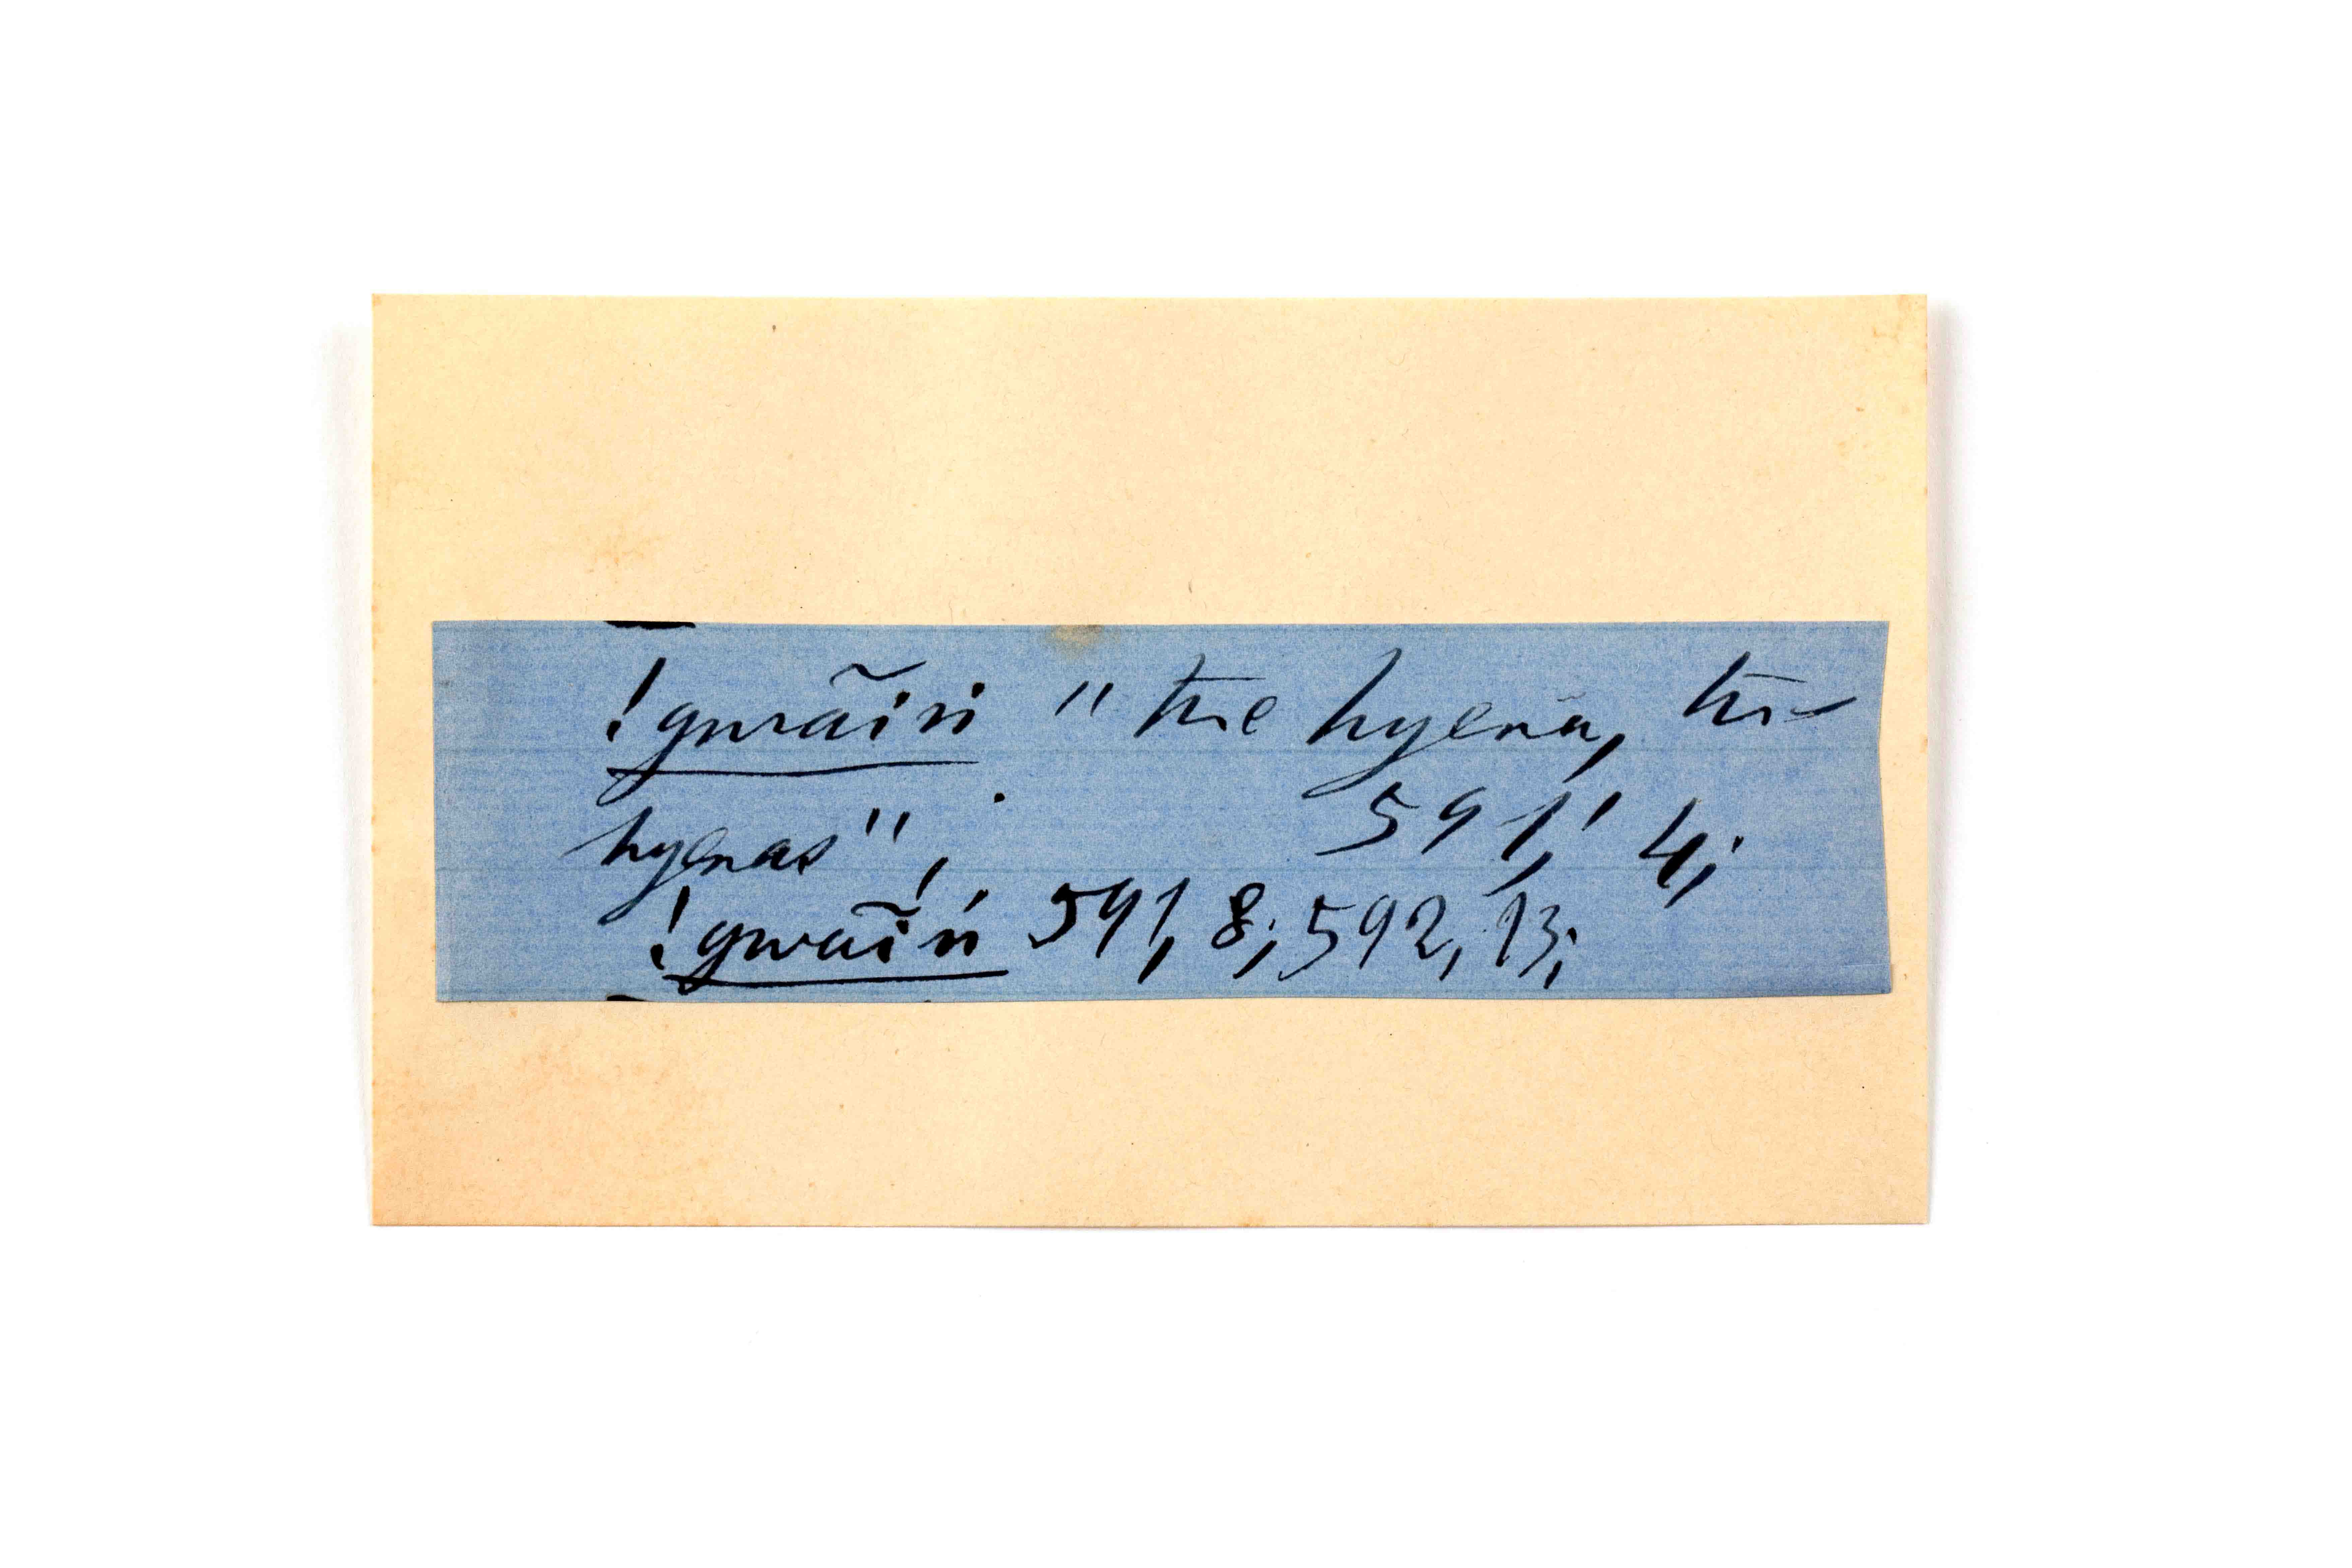 !gwãiṅ " the hyena, the
hyenas", 591, 4;
!gwãiṅ 591, 8; 592, 13;